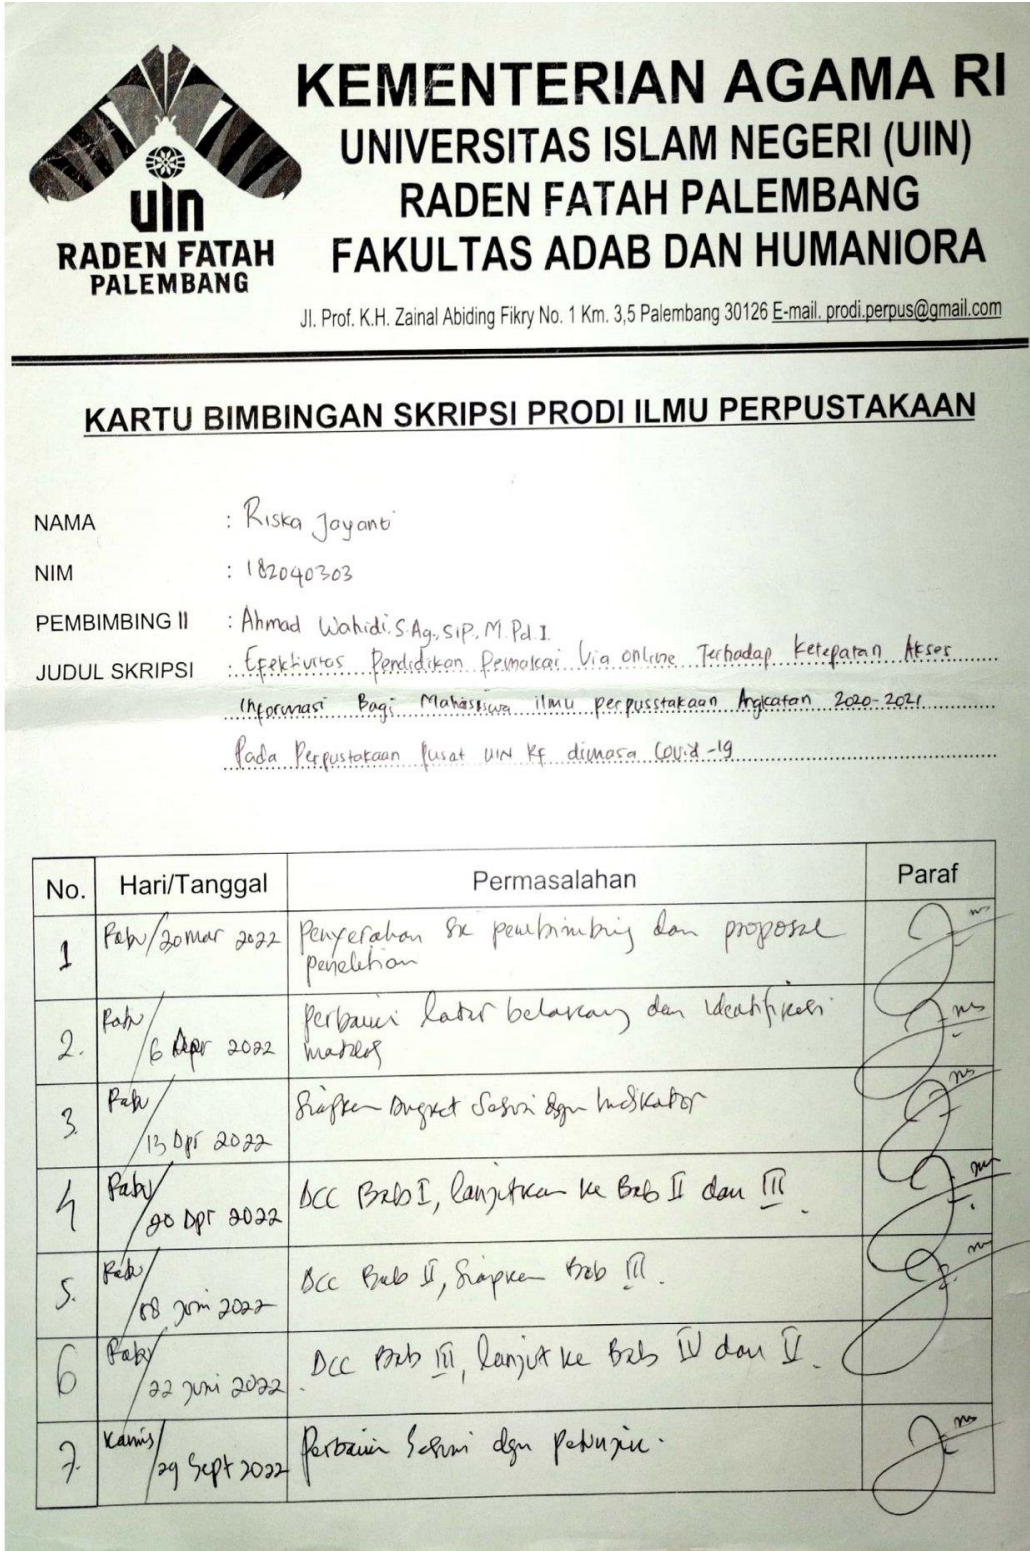 KEMENTERIAN AGAMA RI
UNIVERSITAS ISLAM NEGERI (UIN)
RADEN FATAH PALEMBANG
FAKULTAS ADAB DAN HUMANIORA
uin
RADEN FATAH
PALEMBANG
Jl. Prof. K.H. Zainal Abiding Fikry No. 1 Km. 3,5 Palembang 30126 E-mail. prodi.perpus@gmail.com
KARTU BIMBINGAN SKRIPSI PRODI ILMU PERPUSTAKAAN
NAMA : Riska Jayanti
NIM : 182040303
PEMBIMBING II : Ahmad Wahidi. S.Ag., SIP., M. Pd. I.
JUDUL SKRIPSI : Efektivitas Pendidikan Pemakai Via online Terhadap Ketepatan Akses
Informasi Bagi Mahasiswa ilmu perpusstakaan Angkatan 2020-2021
Pada Perpustakaan Pusat UIN RF dimasa Covid-19
No. Hari/Tanggal Permasalahan Paraf
1 Rabu/30 mar 2022 Penyerahan SK pembimbing dan proposal
penelitian
2. Rabu/ Perbaiki latar belakang dan identifikasi
6 Apr 2022
3. Rabu/ Siapkan Angket Sesuai dgn Indikator
13 Apr 2022
4 Rabu/ Acc Bab I, lanjutkan ke Bab II dan III.
20 Apr 2022
5. Rabu/ Acc Bab II, Siapkan Bab III.
08 Juni 2022
6 Rabu/ Acc Bab III, lanjut ke Bab IV dan V.
22 Juni 2022
7. Kamis/ Perbaiki Sesuai dgn petunjuk.
29 Sept 2022